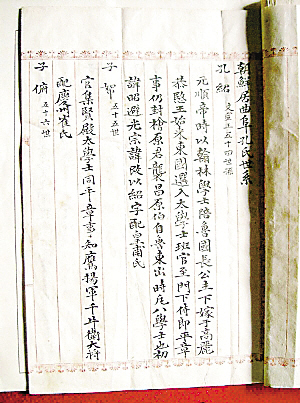 朝鮮居曲阜孔氏世系
孔紹 文宣王五十四世孫
元順帝時以翰林學士陪魯國長公主下嫁于高麗
恭愍王始來東國選入太學士班官至門下侍郎平章
事仍封檜原君襲昌原伯自魯東出時庀八學士初
諱昭避光宗諱改以紹字配皇甫氏
子 帑 五十五世
官集賢殿太學士同平章事知鷹揚軍千牛衛大將
配慶州崔氏
子俯 五十六世